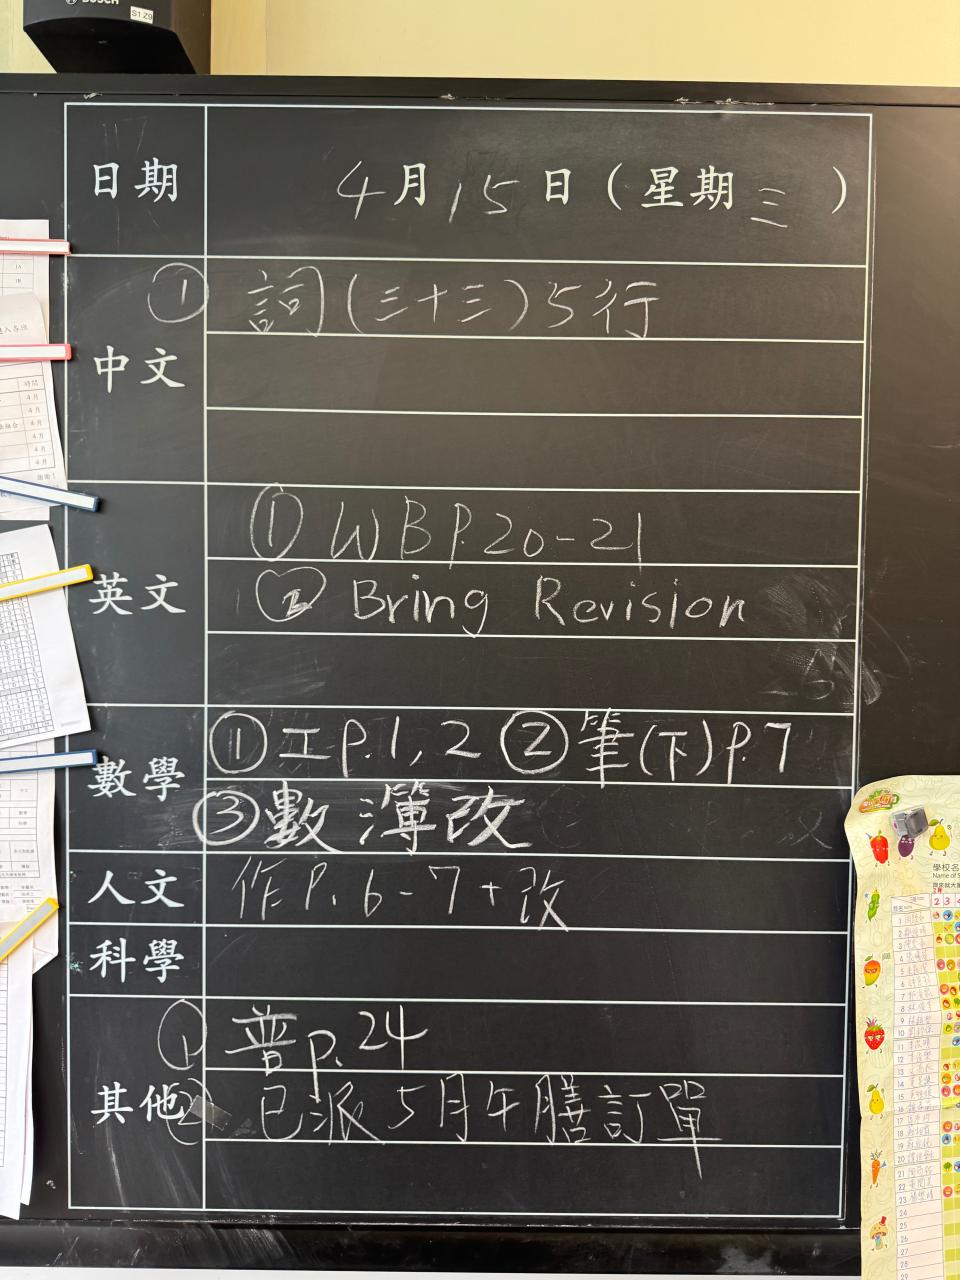 BOSCH
S1 Z9
日期 4月15日（星期三）
中文 ① 詞(三十三)5行
英文 ① WB P.20-21
② Bring Revision
數學 ①工P.1,2 ②筆(下)P.7
③數簿改
人文 作P.6-7+改
科學
其他 ① 普P.24
② 已派5月午膳訂單
時間
4月
4月
4月
4月
4月
4月
學校名
Name of S